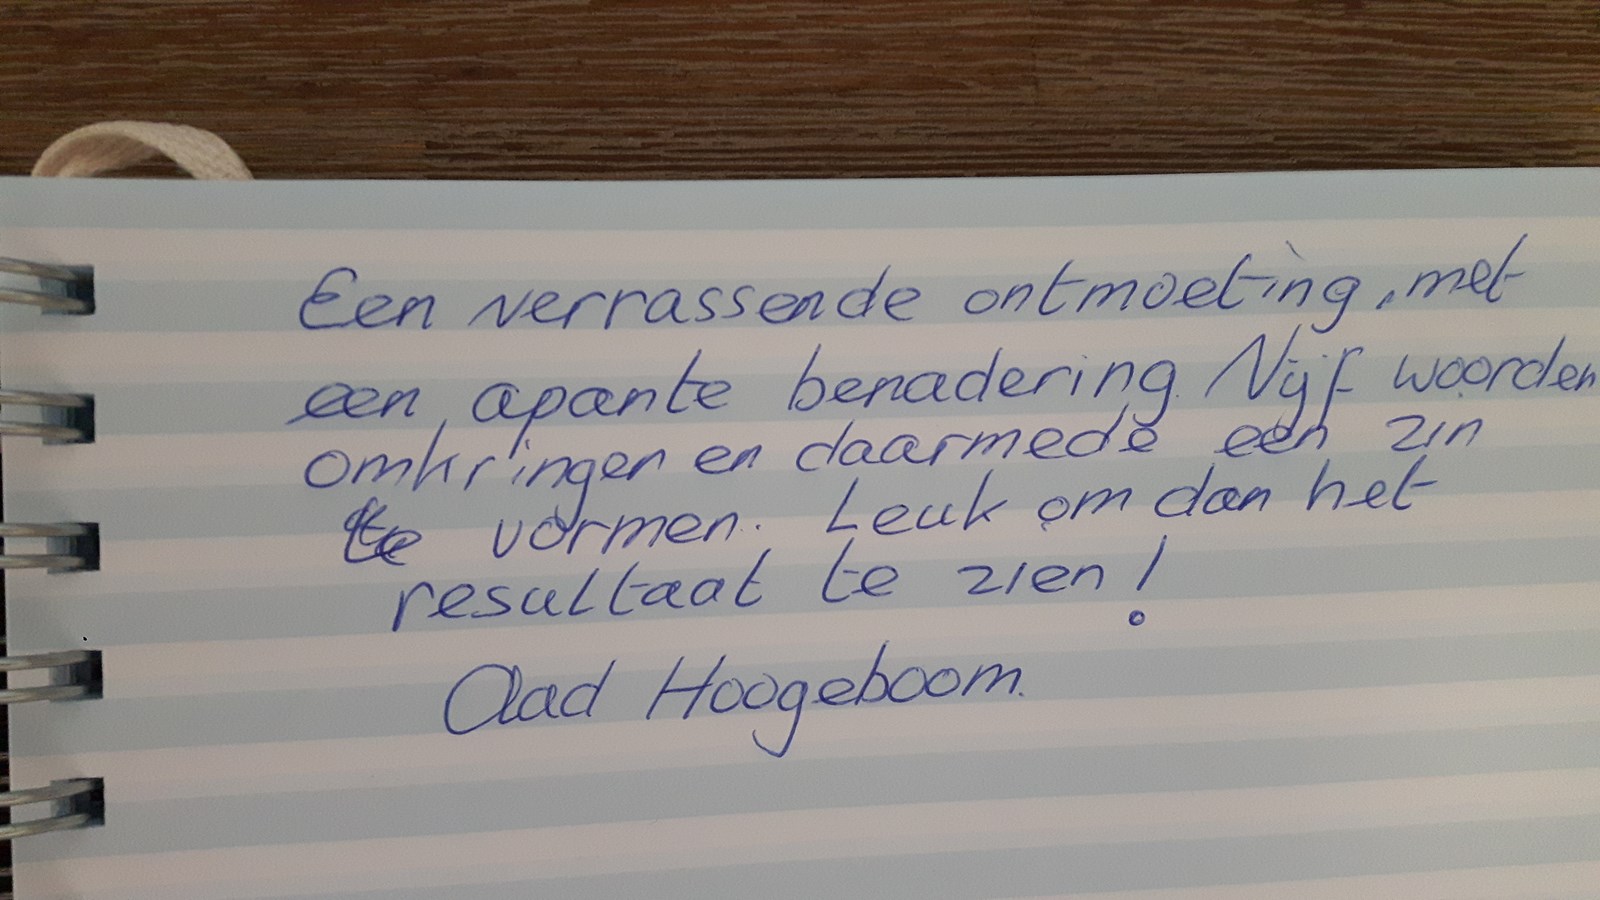 Een verrassende ontmoeting, met
een apante benadering. Vijf woorden
omkringen en daarmede een zin
te vormen. Leuk om dan het
resultaat te zien!
Aad Hoogeboom.